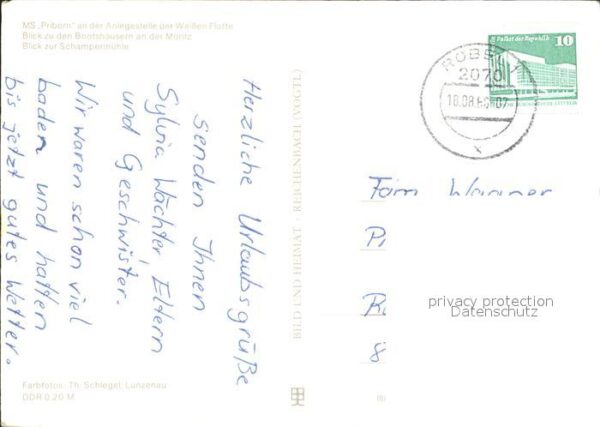 MS „Priborn“ an der Anlegestelle der Weißen Flotte
Blick zu den Bootshäusern an der Müritz
Blick zur Schampermühle
Herzliche Urlaubsgrüße
senden Ihnen
Sylvia Wächter, Eltern
und Geschwister.
Wir waren schon viel
baden und hatten
bis jetzt gutes Wetter.
Farbfotos: Th. Schlegel, Lunzenau
DDR 0,20 M
BILD UND HEIMAT · REICHENBACH (VOGTL)
RÖBEL
2070
Palast der Republik
10
Fam. Wagner
P
R
8
privacy protection
Datenschutz